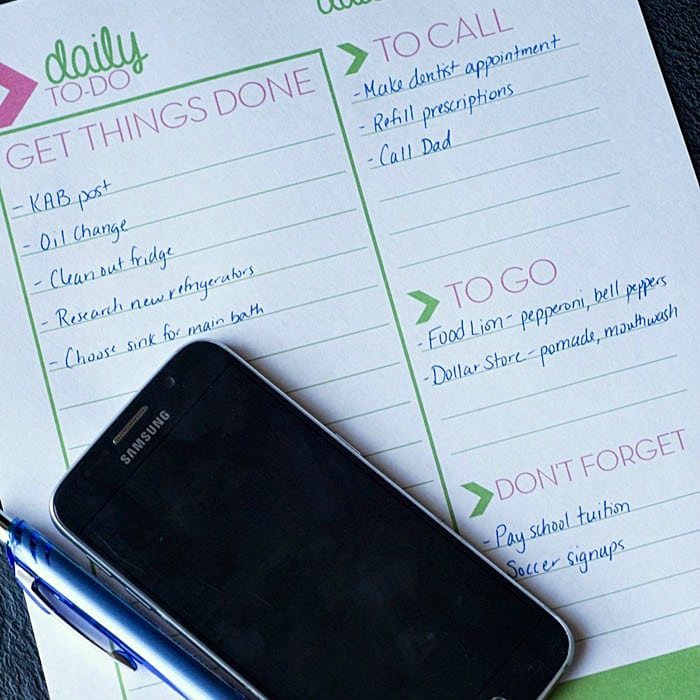 daily
TO-DO
GET THINGS DONE
- KAB post
- Oil Change
- Clean out fridge
- Research new refrigerators
- Choose sink for main bath
TO CALL
- Make dentist appointment
- Refill prescriptions
- Call Dad
TO GO
- Food Lion - pepperoni, bell peppers
- Dollar Store - pomade, mouthwash
DON'T FORGET
- Pay school tuition
Soccer signups
SAMSUNG